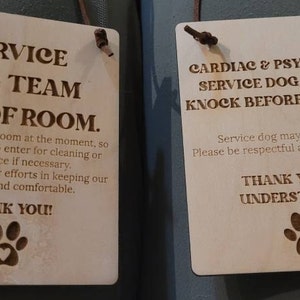 RVICE
TEAM
OF ROOM.
oom at the moment, so
enter for cleaning or
ce if necessary.
efforts in keeping our
nd comfortable.
NK YOU!
CARDIAC & PSY
SERVICE DOG
KNOCK BEFORE
Service dog may
Please be respectful a
THANK Y
UNDERST